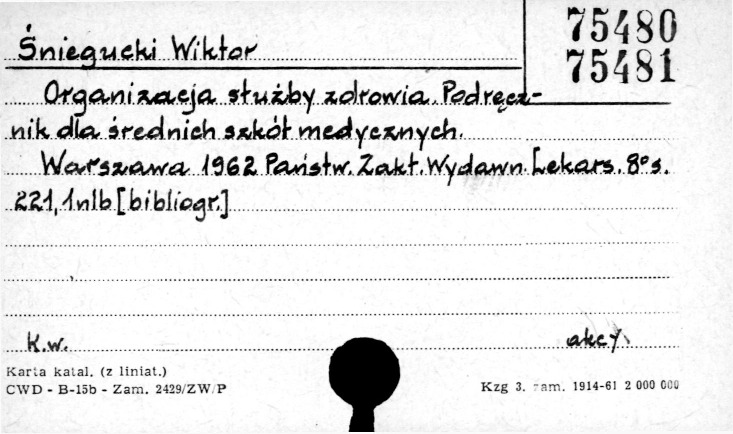 75480
75481
Śniegucki Wiktor
Organizacja służby zdrowia. Podręcz-
nik dla średnich szkół medycznych.
Warszawa 1962 Państw. Zakł. Wydawn. Lekars. 8° s.
221, 1 nlb [bibliogr.]
K.w.
akcy
Karta katal. (z liniat.)
CWD - B-15b - Zam. 2429/ZW/P
Kzg 3. zam. 1914-61 2 000 000